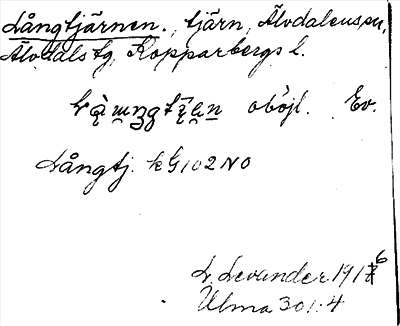 Långtjärnen., tjärn, Älvdalens sn,
Älvdals tg, Kopparbergs l.
oböjl. Ev.
Långtj. kG102NO
L. Levander 1916
Ulma 301:4